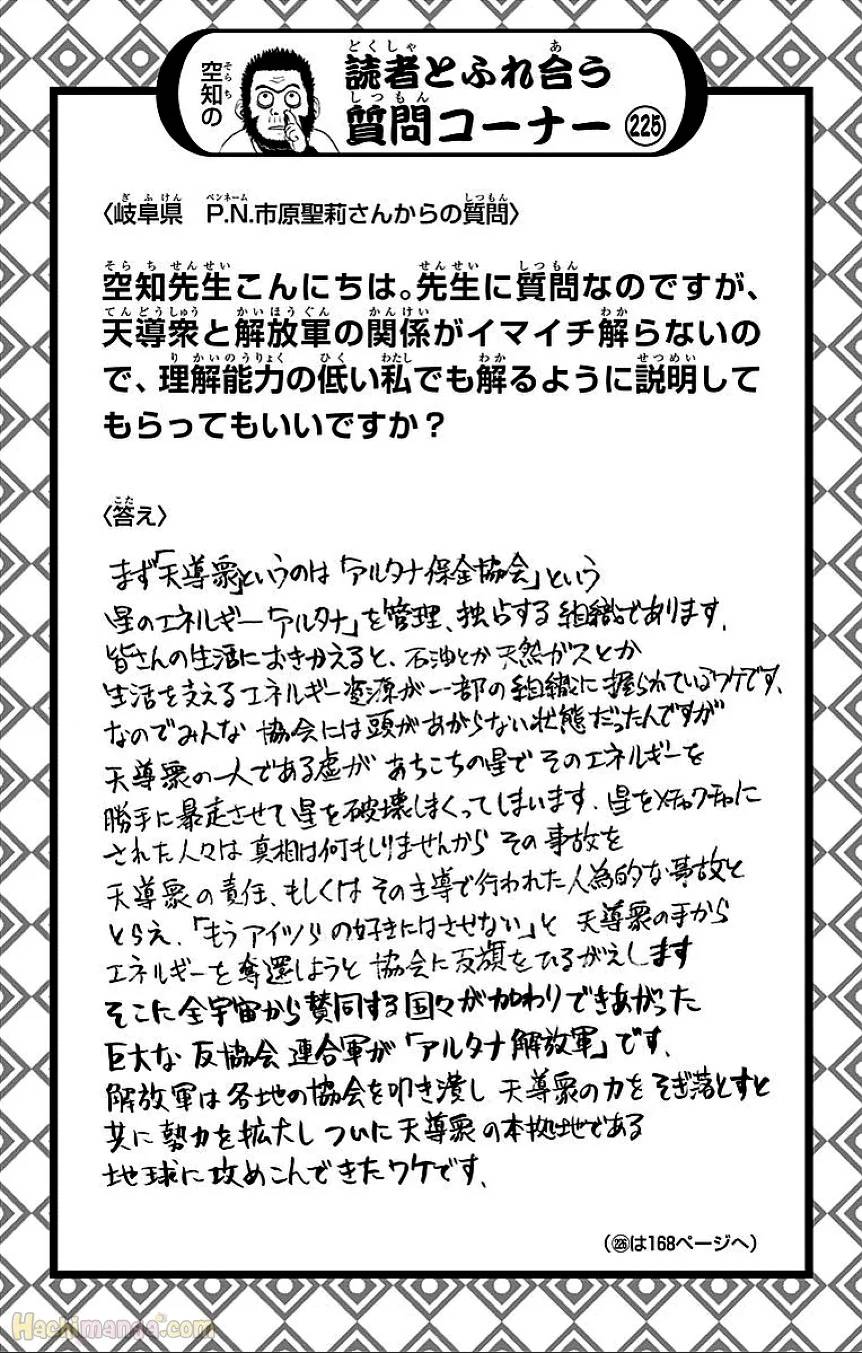 空知の
読者とふれ合う
質問コーナー 225
〈岐阜県　P.N.市原聖莉さんからの質問〉
空知先生こんにちは。先生に質問なのですが、
天導衆と解放軍の関係がイマイチ解らないの
で、理解能力の低い私でも解るように説明して
もらってもいいですか？
〈答え〉
まず「天導衆」というのは「アルタナ保全協会」という
星のエネルギー「アルタナ」を管理、独占する組織であります。
皆さんの生活におきかえると、石油とか天然ガスとか
生活を支えるエネルギー資源が一部の組織に握られているワケです。
なのでみんな 協会には頭があがらない状態だったんですが
天導衆の一人である虚が あちこちの星で そのエネルギーを
勝手に暴走させて星を破壊しまくってしまいます。星をメチャクチャに
された人々は 真相は何もしりませんから その事故を
天導衆の責任、もしくは その主導で行われた人為的な事故と
とらえ、「もうアイツらの好きにはさせない」と 天導衆の手から
エネルギーを奪還しようと 協会に反旗をひるがえします
そこに全宇宙から賛同する国々が加わりできあがった
巨大な 反協会 連合軍が「アルタナ解放軍」です。
解放軍は各地の協会を叩き潰し 天導衆の力を そぎ落とすと
共に 勢力を拡大し ついに天導衆の本拠地である
地球に攻めこんできたワケです。
（226は168ページへ）
Hachimanga.com